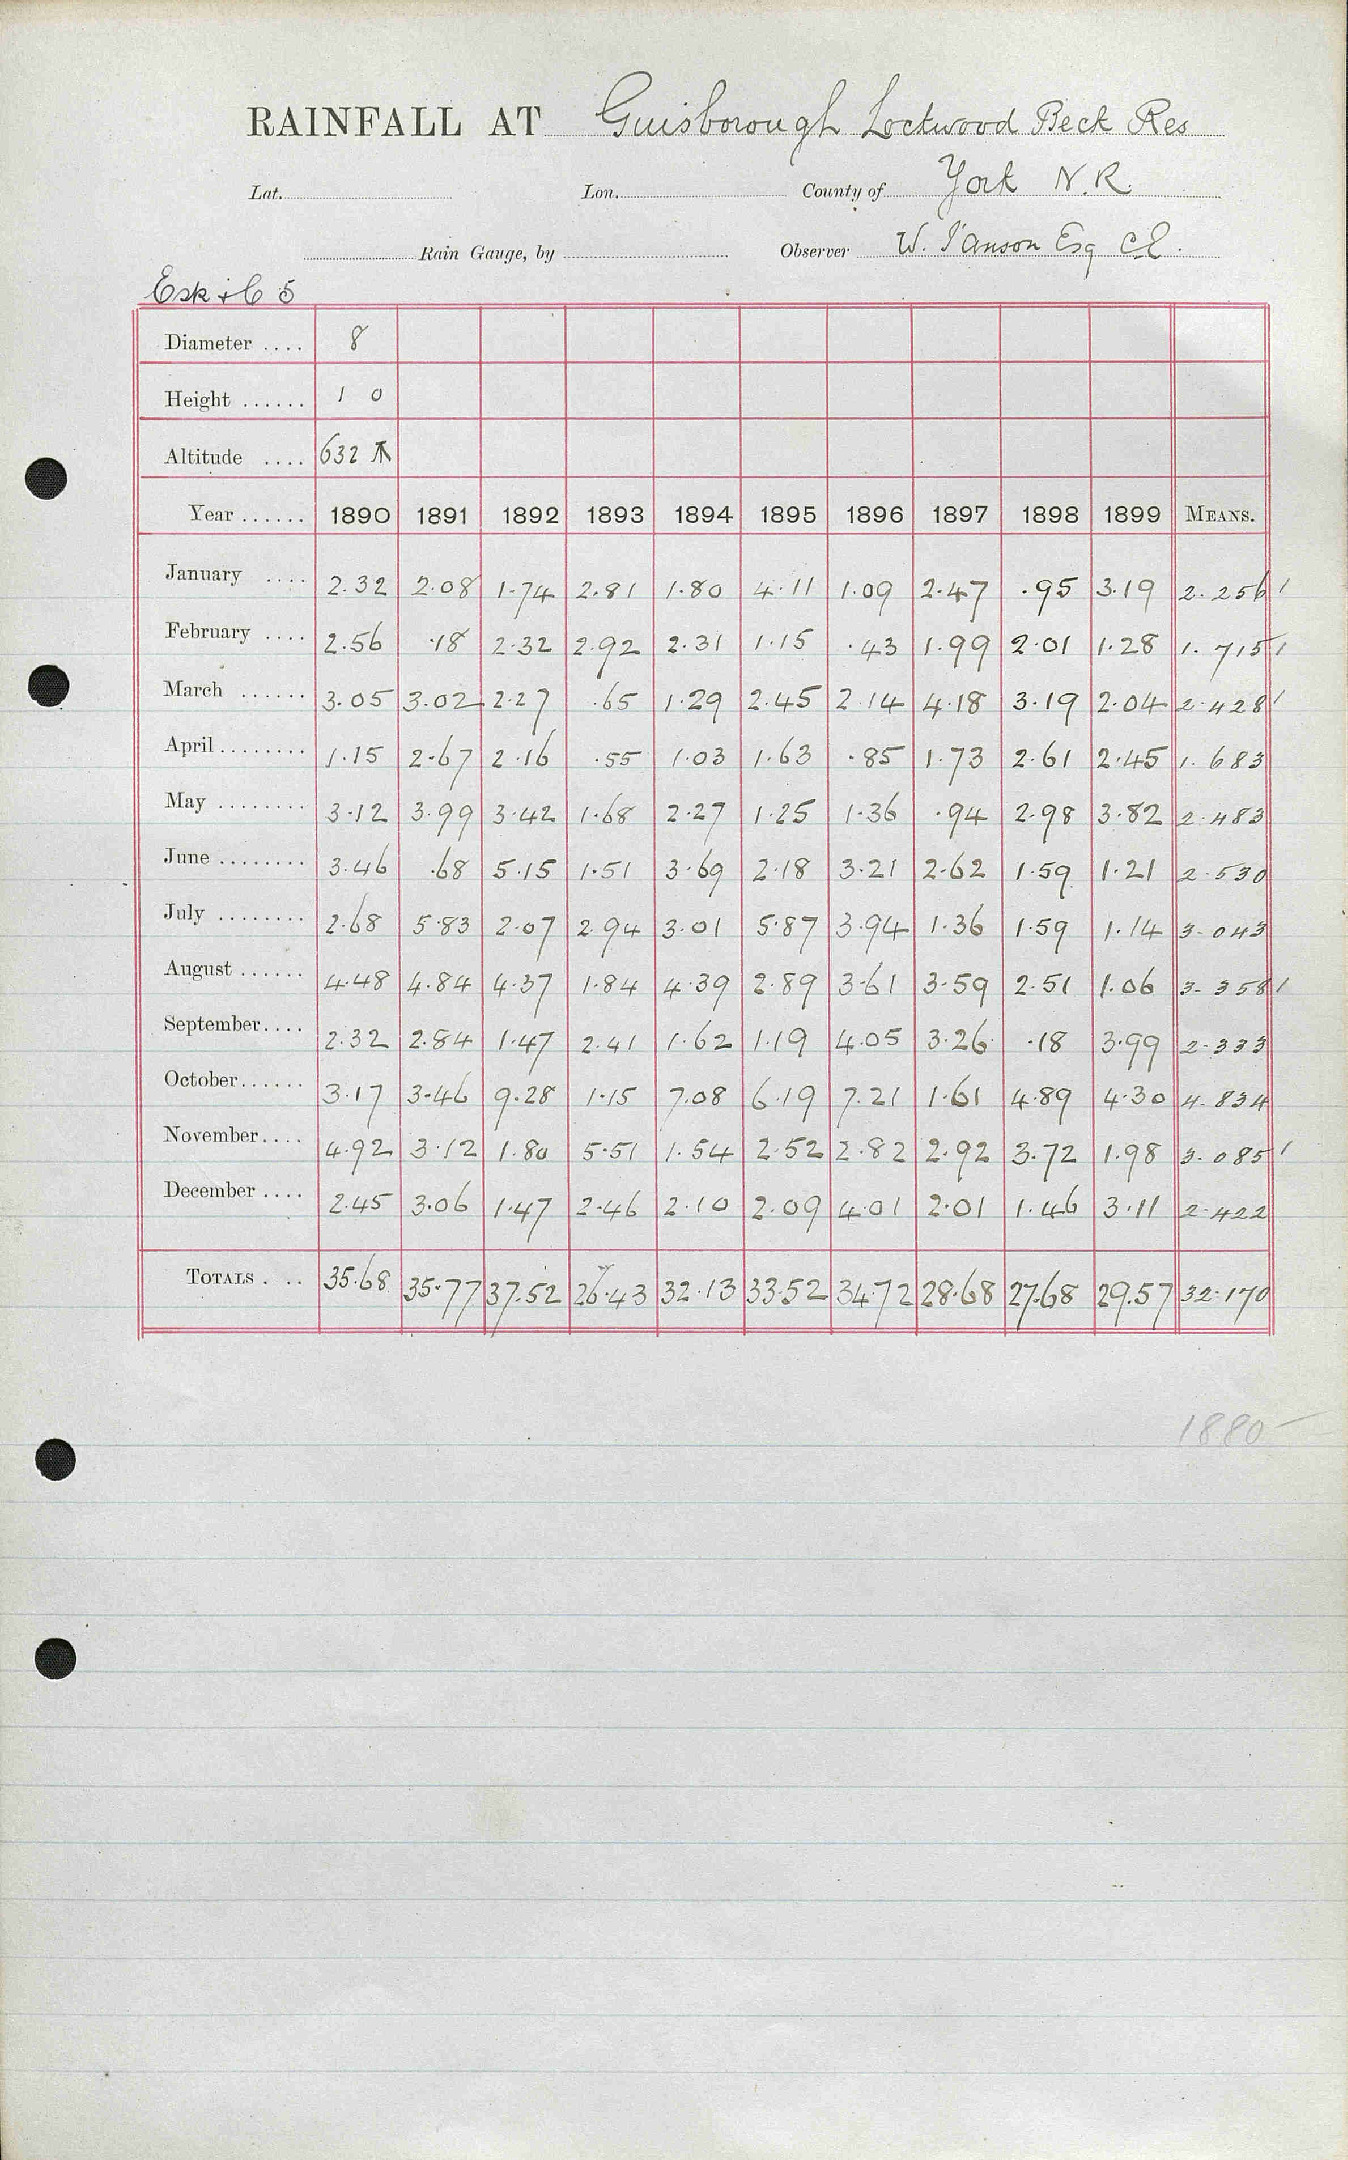 RAINFALL AT Guisborough Lockwood Beck Res
Lat. Lon. County of York N.R.
Rain Gauge, by Observer W. I'Anson Esq CE.
Esk + C 5
Diameter .... 8
Height ...... 1 0
Altitude .... 632
Year ...... 1890 1891 1892 1893 1894 1895 1896 1897 1898 1899 MEANS.
January .... 2.32 2.08 1.74 2.81 1.80 4.11 1.09 2.47 .95 3.19 2.256
February .... 2.56 .18 2.32 2.92 2.31 1.15 .43 1.99 2.01 1.28 1.715
March ...... 3.05 3.02 2.27 .65 1.29 2.45 2.14 4.18 3.19 2.04 2.428
April ........ 1.15 2.67 2.16 .55 1.03 1.63 .85 1.73 2.61 2.45 1.683
May ........ 3.12 3.99 3.42 1.68 2.27 1.25 1.36 .94 2.98 3.82 2.483
June ........ 3.46 .68 5.15 1.51 3.69 2.18 3.21 2.62 1.59 1.21 2.530
July ........ 2.68 5.83 2.07 2.94 3.01 5.87 3.94 1.36 1.59 1.14 3.043
August ...... 4.48 4.84 4.37 1.84 4.39 2.89 3.61 3.59 2.51 1.06 3.358
September .... 2.32 2.84 1.47 2.41 1.62 1.19 4.05 3.26 .18 3.99 2.333
October ...... 3.17 3.46 9.28 1.15 7.08 6.19 7.21 1.61 4.89 4.30 4.834
November .... 4.92 3.12 1.80 5.51 1.54 2.52 2.82 2.92 3.72 1.98 3.085
December .... 2.45 3.06 1.47 2.46 2.10 2.09 4.01 2.01 1.46 3.11 2.422
TOTALS . .. 35.68 35.77 37.52 26.43 32.13 33.52 34.72 28.68 27.68 29.57 32.170
1880-